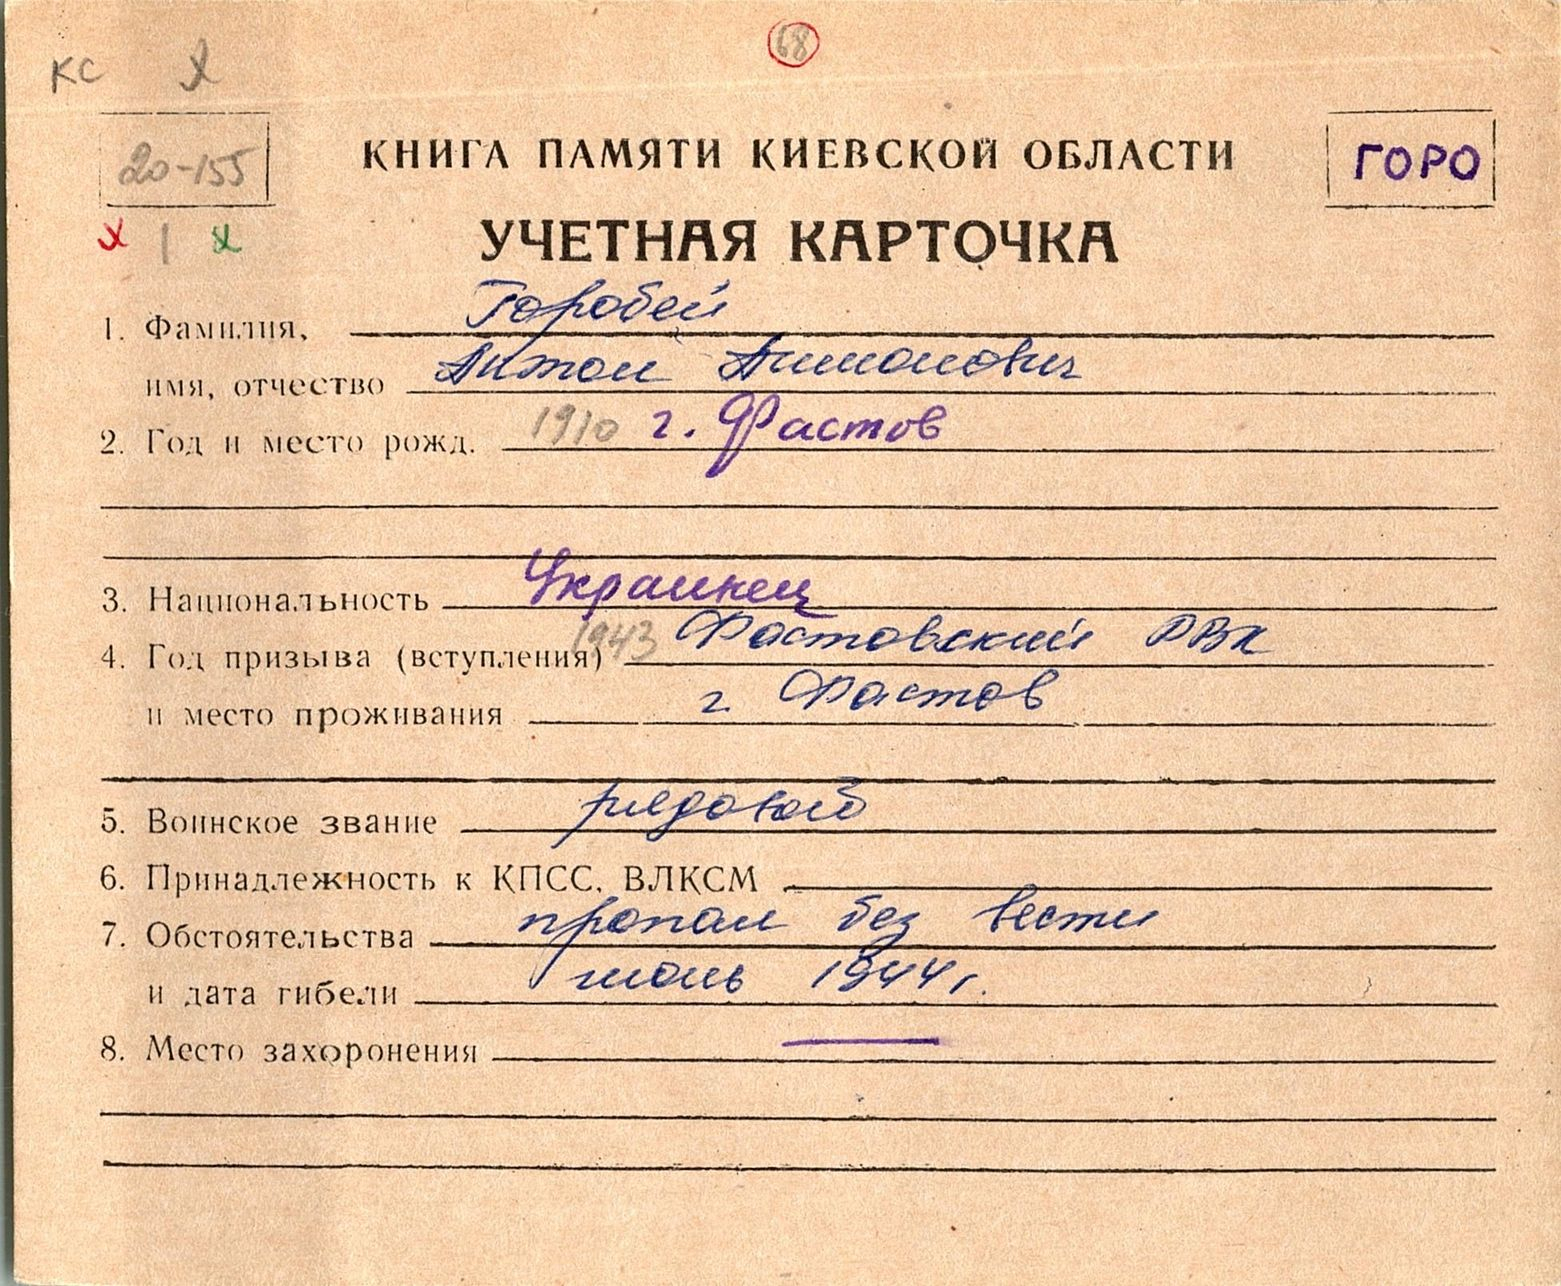 68
КС
20-155
КНИГА ПАМЯТИ КИЕВСКОЙ ОБЛАСТИ
ГОРО
УЧЕТНАЯ КАРТОЧКА
1. Фамилия, Горобей
имя, отчество Антон
2. Год и место рожд. 1910 г. Фастов
3. Национальность Украинец
4. Год призыва (вступления) 1943 Фастовский РВК
и место проживания г. Фастов
5. Воинское звание рядовой
6. Принадлежность к КПСС, ВЛКСМ
7. Обстоятельства пропал без вести
и дата гибели 1944 г.
8. Место захоронения —